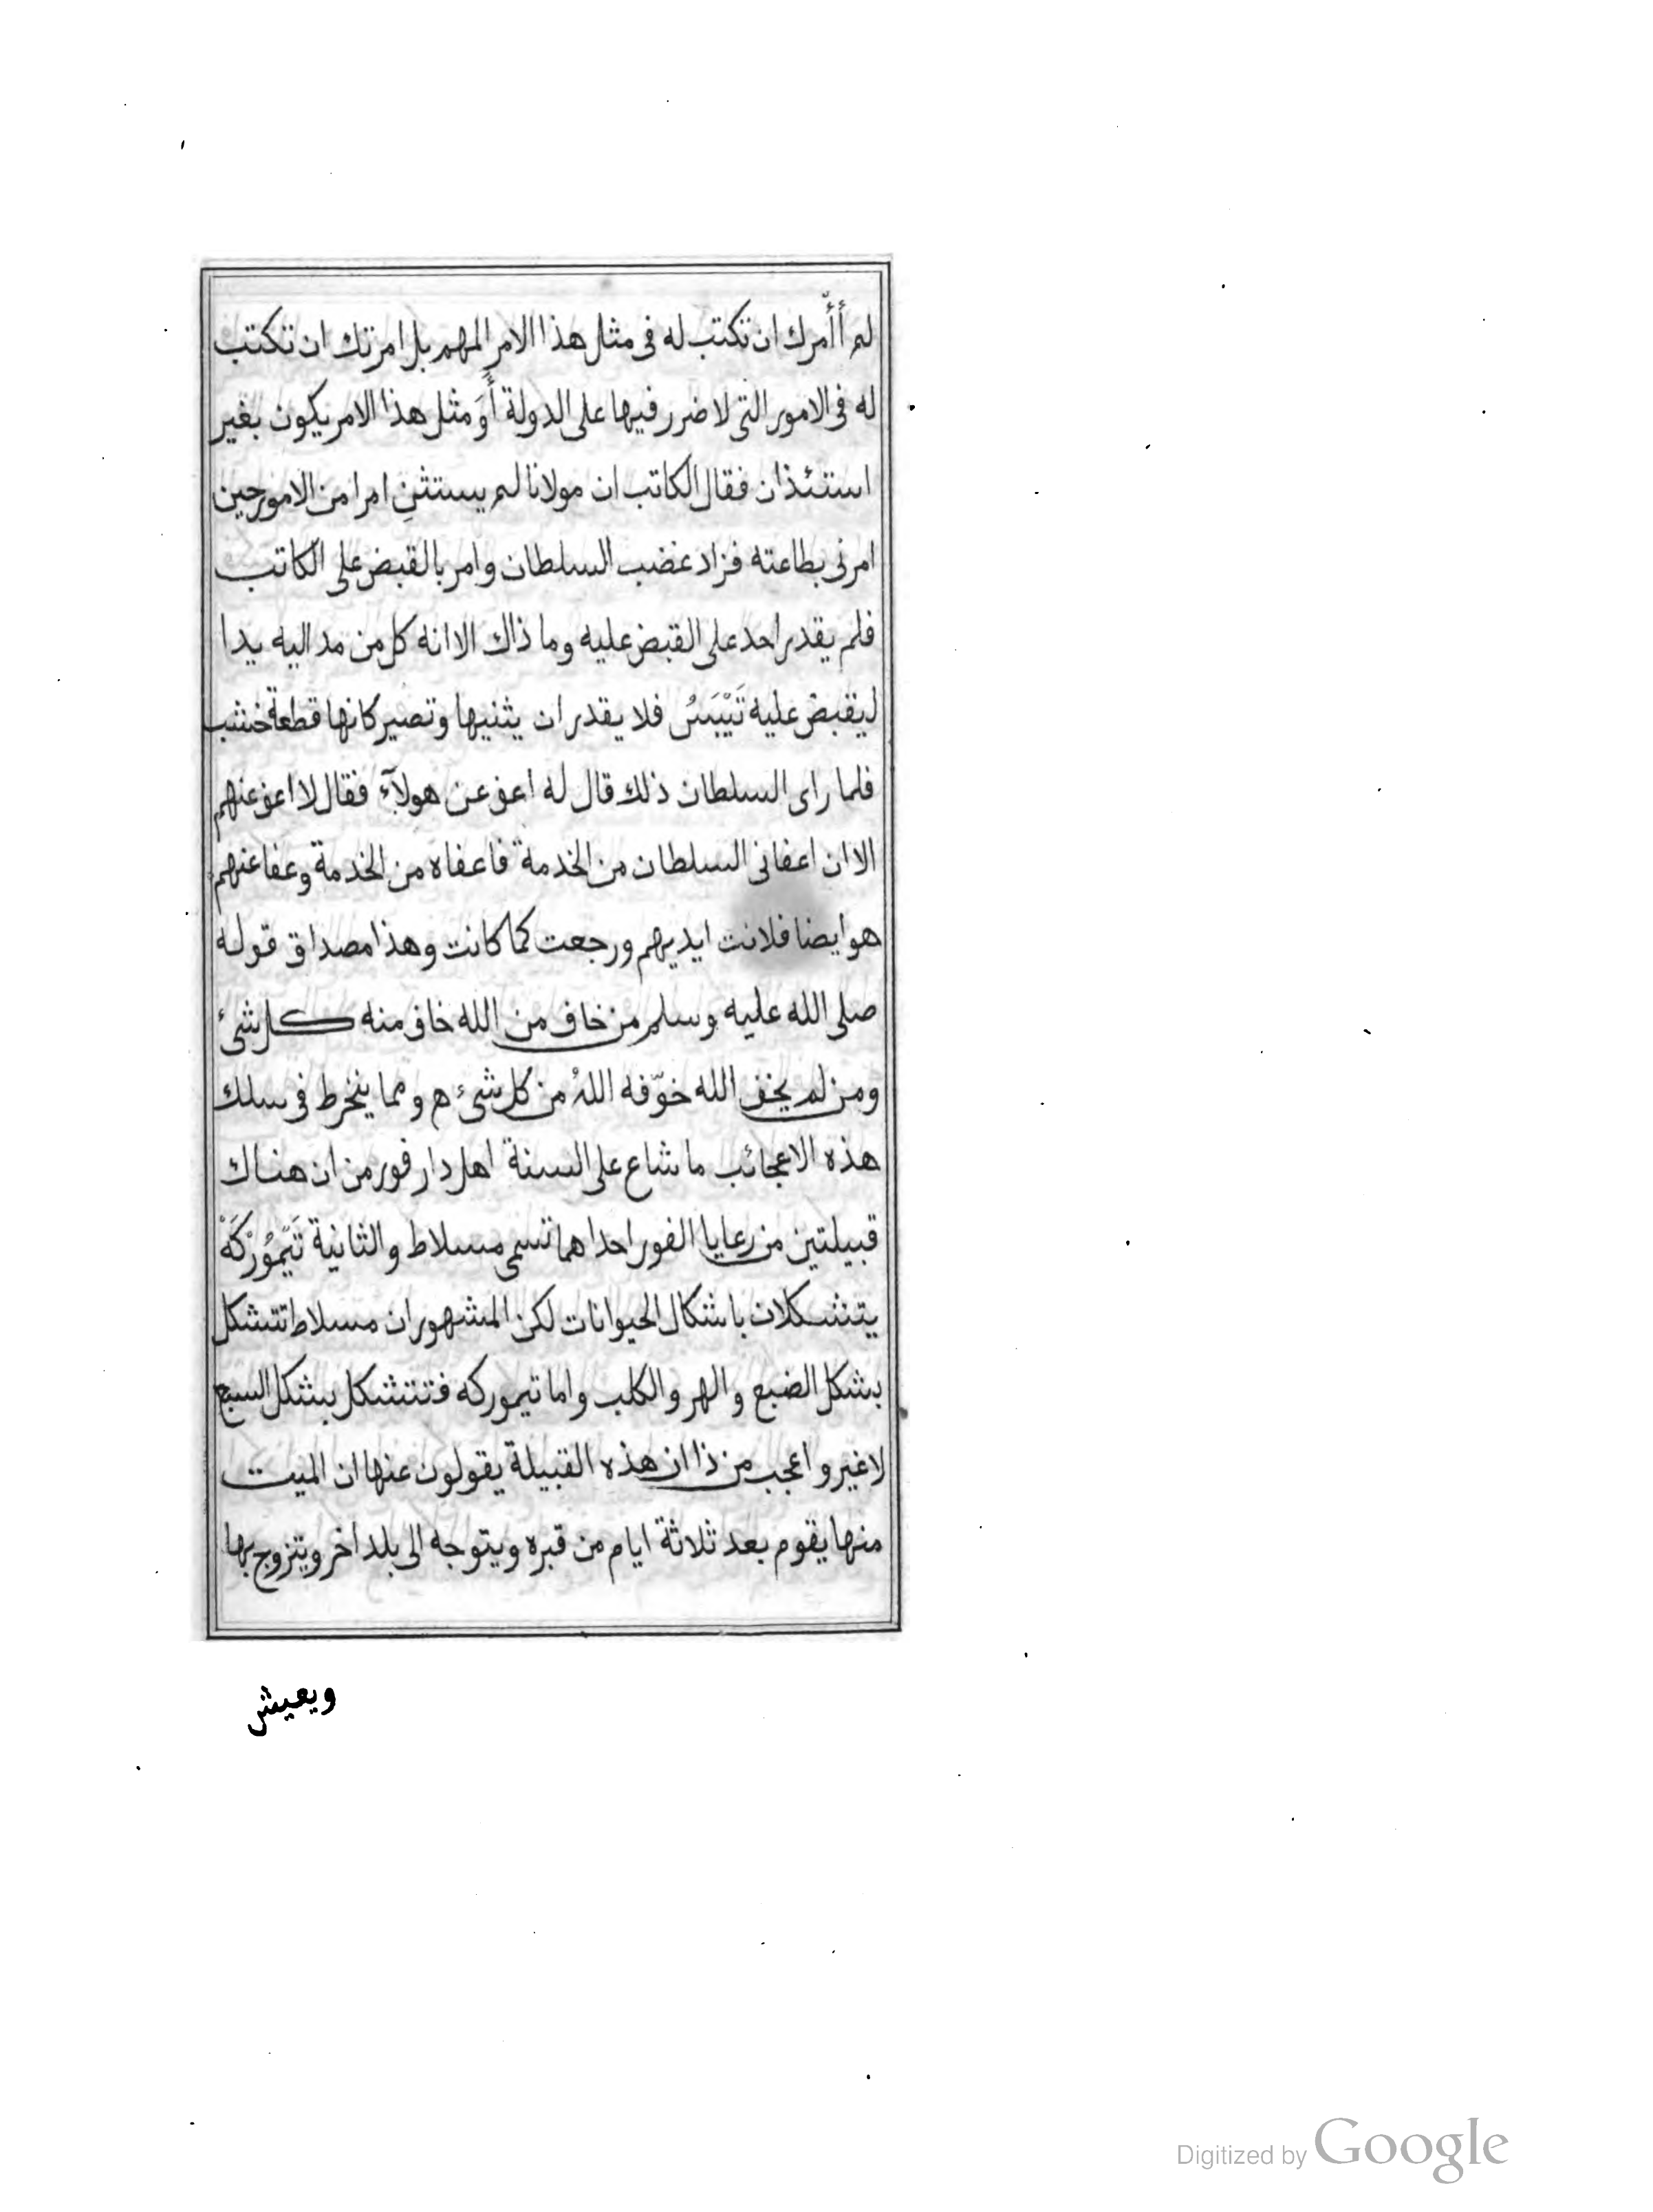 لم أأمرك ان تكتب له فى مثل هذا الامر المهم بل امرتك ان تكتب
له فى الامور التى لا ضرر فيها على الدولة أَوَ مثل هذا الامر يكون بغير
استئذان فقال الكاتب ان مولانا لم يستثنِ امرا من الامور حين
امرنى بطاعته فزاد غضب السلطان وامر بالقبض على الكاتب
فلم يقدر احد على القبض عليه وما ذاك الا انه كل من مد اليه يدا
ليقبض عليه تَيْبَسُ فلا يقدر ان يثنيها وتصير كانها قطعة خشب
فلما راى السلطان ذلك قال له اعف عن هولآء فقال لا اعف عنهم
الا ان اعفانى السلطان من الخدمة فاعفاه من الخدمة وعفا عنهم
هو ايضا فلانت ايديهم ورجعت كما كانت وهذا مصداق قوله
صلى الله عليه وسلم من خاف من الله خاف منه كل شىء
ومن لم يخف الله خوّفه اللهُ من كل شىء ه ومما ينخرط فى سلك
هذه الاعجائب ما شاع على السنة اهل دار فور من ان هناك
قبيلتين من رعايا الفور احداهما تسمى مسلاط والثانية تَيْمُوُرْكَهْ
يتشكلان باشكال الحيوانات لكن المشهور ان مسلاط تتشكل
بشكل الضبع والهر والكلب واما تيموركه فتتشكل بشكل السبع
لا غير واعجب من ذا ان هذه القبيلة يقولون عنها ان الميت
منها يقوم بعد ثلاثة ايام من قبره ويتوجه الى بلد اخر ويتزوج بها
ويعيش
Digitized by Google